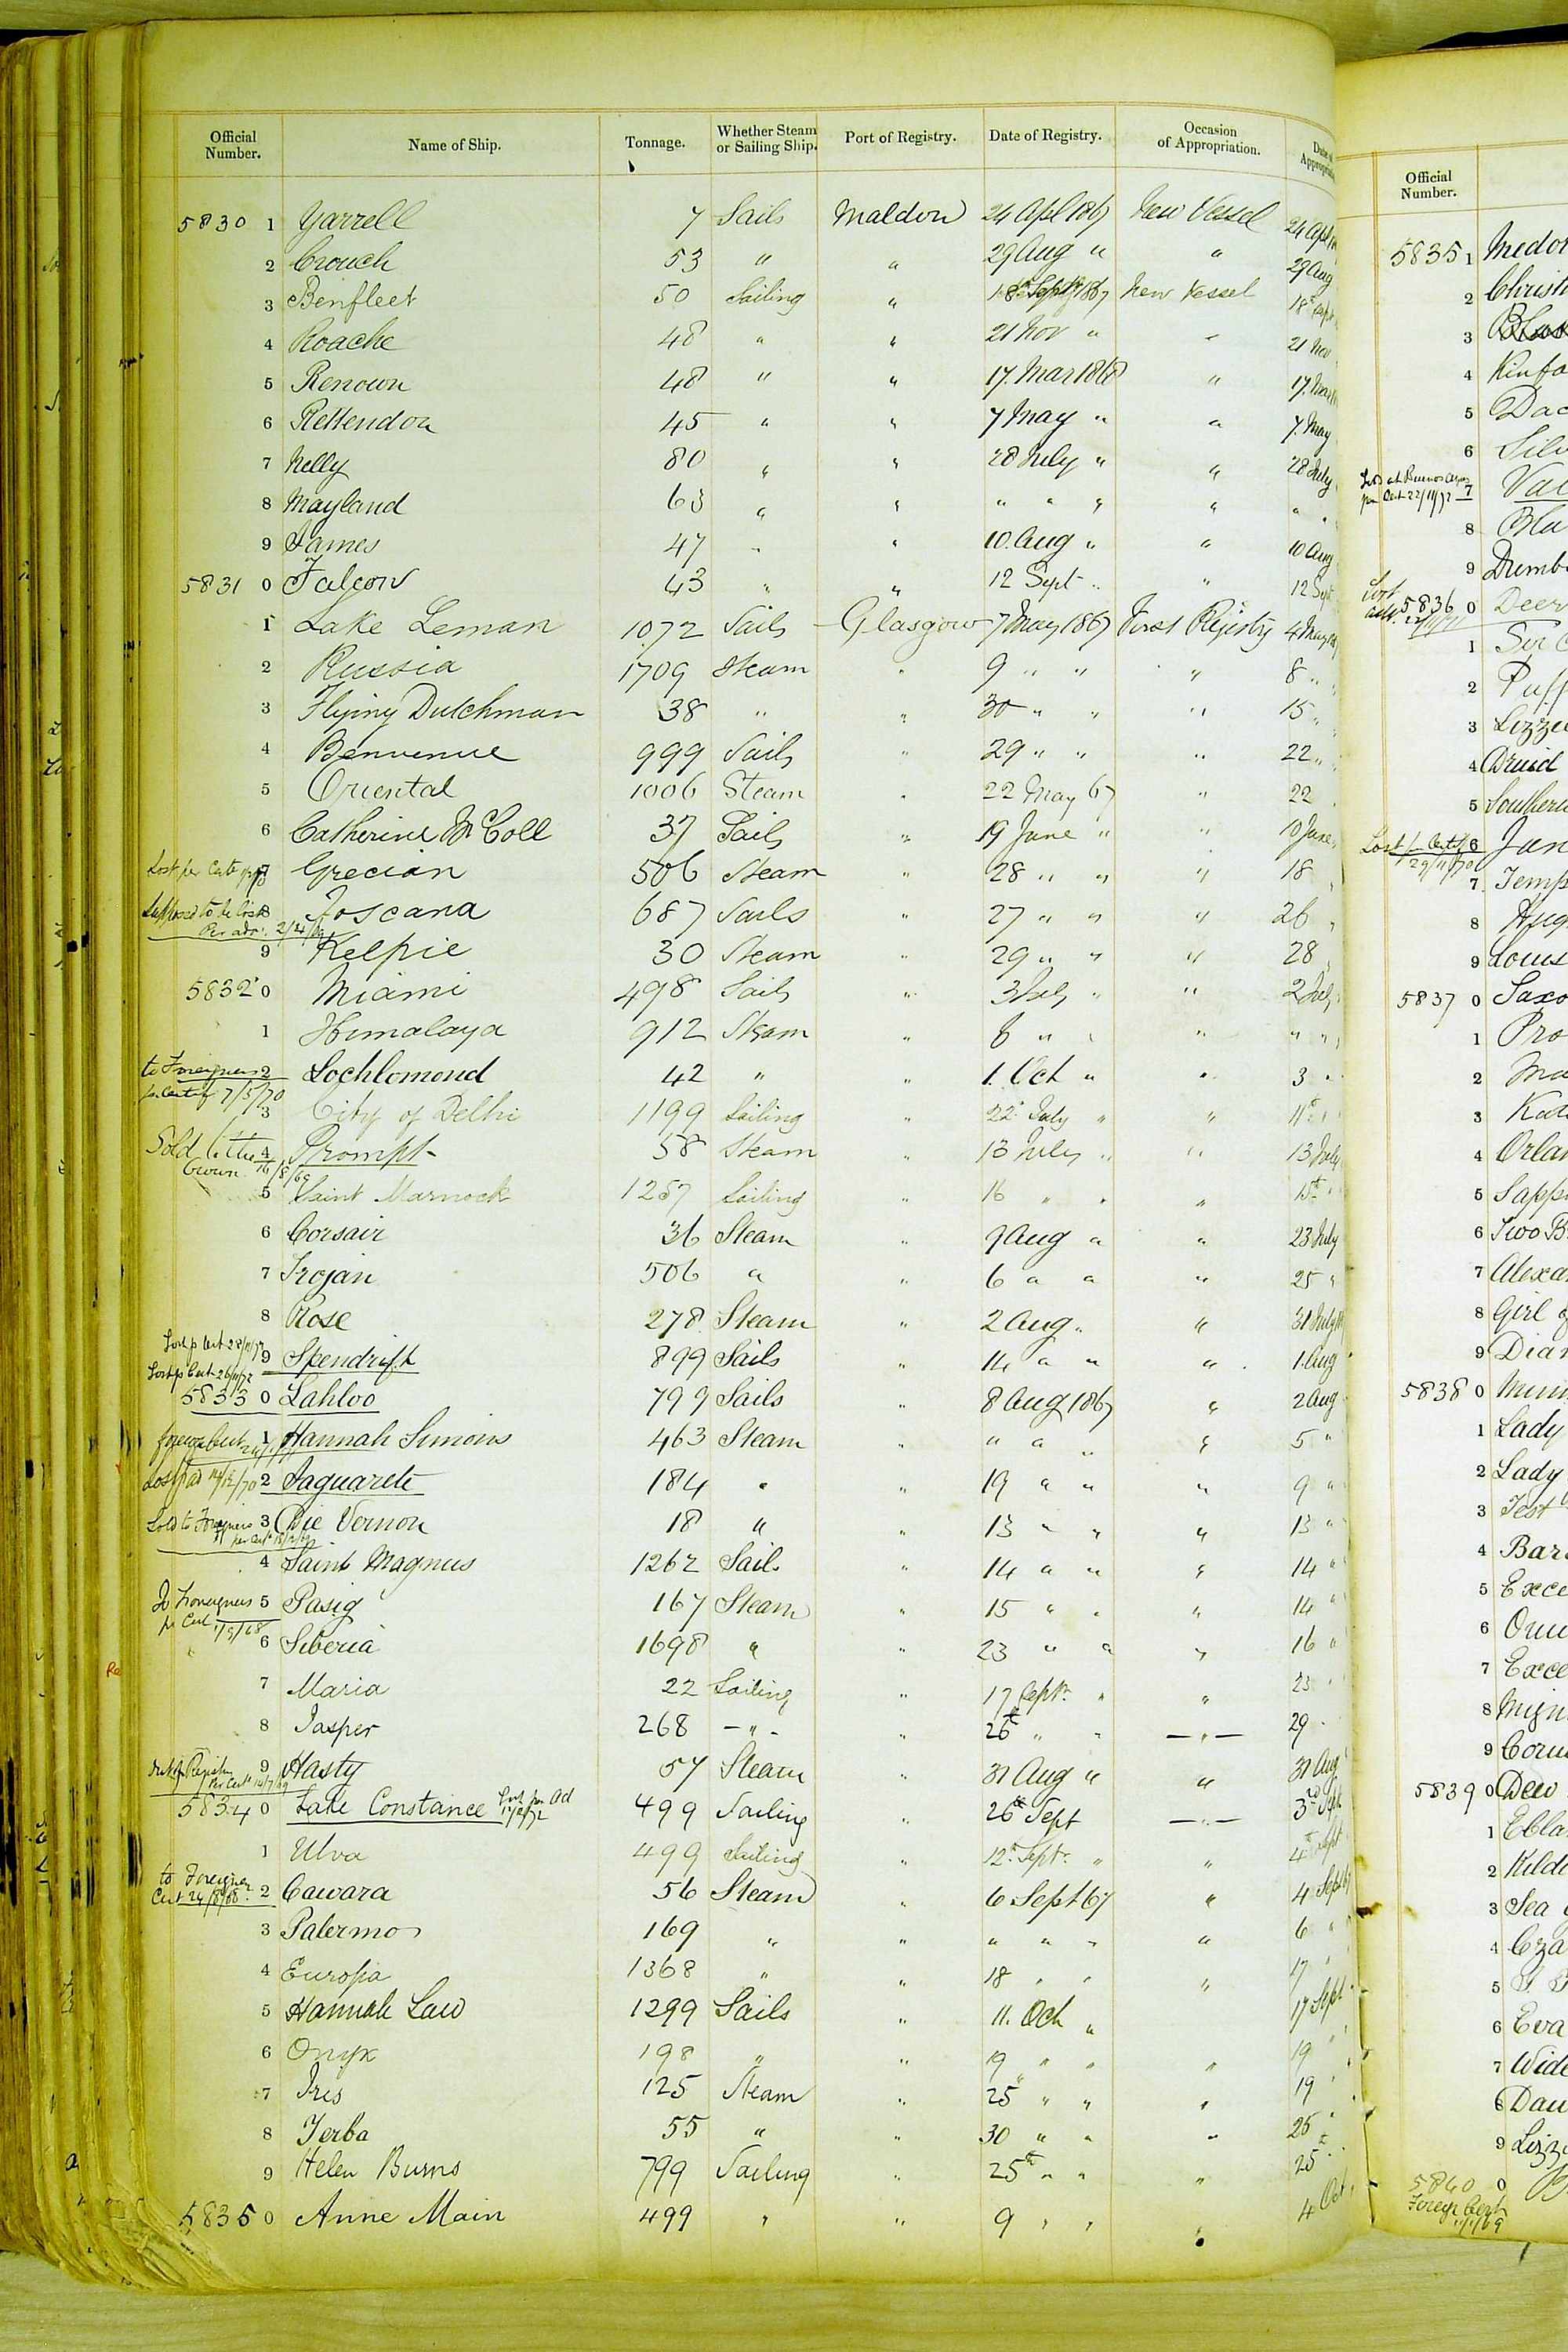 Official Number. Name of Ship. Tonnage. Whether Steam or Sailing Ship. Port of Registry. Date of Registry. Occasion of Appropriation.
5830 1 Yarrell 7 Sails Maldon 24 Apl 1867 New Vessel 24 Apl
2 Crouch 53 " " 29 Aug " " 29 Aug
3 Benfleet 50 Sailing " 18th Septr 1867 New Vessel 18 Sept
4 Roache 48 " " 21 Nov " " 21 Nov
5 Renown 48 " " 17. Mar 1868 " 17. Mar
6 Rettendon 45 " " 7 May " " 7. May
7 Nelly 80 " " 28 July " " 28 July
8 Mayland 63 " " " " " " " "
9 James 47 " " 10. Aug " " 10 Aug
5831 0 Falcon 43 " " 12 Sept " " 12 Sept
1 Lake Leman 1072 Sails Glasgow 7 May 1867 First Registry 4 May
2 Russia 1709 Steam " 9 " " " 8 "
3 Flying Dutchman 38 " " 30 " " " 15 "
4 Benvenue 999 Sails " 29 " " " 22 "
5 Oriental 1006 Steam " 22 May 67 " 22
6 Catherine McColl 37 Sails " 19 June " " 10 June
Lost per Certe 7 Grecian 506 Steam " 28 " " " 18 "
Supposed to be lost 8 Toscana 687 Sails " 27 " " " 26 "
Per adv. 2/4/
9 Kelpie 30 Steam " 29 " " " 28
5832 0 Miami 498 Sails " 3 July " " 2 July
1 Himalaya 912 Steam " 8 " " " " "
to Foreigners 2 Lochlomond 42 " " 1. Oct " " 3 "
pr Certif 7/5/70
3 City of Delhi 1199 Sailing " 22d July " " 11th "
Sold to the 4 Prompt 58 Steam " 13 July " " 13 July
Crown 16/8/69
5 Saint Marnock 1257 Sailing " 16 " " " 15th "
6 Corsair 36 Steam " 9 Aug " " 23 July
7 Trojan 506 " " 6 " " " 25 "
8 Rose 278 Steam " 2 Aug " " 31 July
Lost p Cert 9 Spendrift 899 Sails " 14 " " " 1. Aug
Lost p Cert 26/11/72
5833 0 Lahloo 799 Sails " 8 Aug 1867 " 2 Aug
foreign Cert 1 Hannah Simons 463 Steam " " " " " 5 "
Lost p ad 14/12/70 2 Jaguarete 184 " " 19 " " " 9 "
Sold to Foreigners 3 Die Vernon 18 " " 13 " " " 13 "
4 Saint Magnus 1262 Sails " 14 " " " 14 "
To Foreigners 5 Pasig 167 Steam " 15 " " " 14 "
pr Cert 1/9/68
6 Siberia 1698 " " 23 " " " 16 "
7 Maria 22 Sailing " 17 Septr " " 23 "
8 Jasper 268 — " - " 26th " " — " — 29
9 Hasty 57 Steam " 31 Aug " " 31 Aug
Per Certe 14/7/69
5834 0 Lake Constance Lost per Ad 499 Sailing " 26th Sept — " — 3rd Sept
1 Ulva 499 Sailing " 12th Septr " " 4th Sept
to Foreigner 2 Cawara 56 Steam " 6 Sept 67 " 4 Sept 67
Cert 24/8/68
3 Palermo 169 " " " " " " 6 "
4 Europa 1368 " " 18 " " " 17 "
5 Hannah Law 1299 Sails " 11. Oct " 17 Sept
6 Onyx 198 " " 19 " " " 19 "
7 Iris 125 Steam " 25 " " " 19 "
8 Jerba 55 " " 30 " " " 25 "
9 Helen Burns 799 Sailing " 25th " " " 25
5835 0 Anne Main 499 " " 9 " " " 4 Oct
Official Number.
5835 1
2 Christ
3
4 Kinfa
5 Dac
6 Silv
Sold at Buenos Ayres 7
pr Cert 22/11/72
8 Blu
9 Dumb
Lost 5836 0 Deer
1 Sir C
2 Puff
3 Lizzie
4 Druid
5 Southern
Lost pr Certif 6 Jan
29/11/70
7 Temp
8 Aug
9 Louis
5837 0 Saxo
1 Pro
2 Ma
3 Kat
4 Orlan
5 Sapp
6 Two B
7 Alexa
8 Girl of
9 Dian
5838 0 Minn
1 Lady
2 Lady
3 Test
4 Bar
5 Exce
6 Omi
7 Exce
8 Mign
9 Corn
5839 0 Dew
1 Ebla
2 Kild
3 Sea
4 Cza
5
6 Eva
7 Wide
8 Dau
9 Lizz
5840 0
Foreign Cert
11/1/69